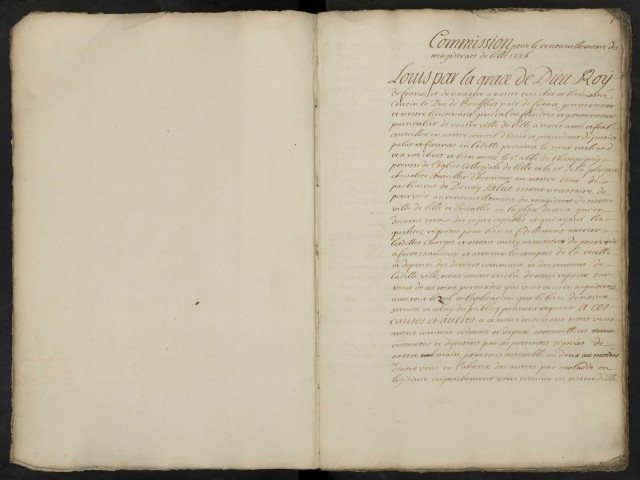 Commission pour le renouvellement des
magistrats de lille 1726
Louis par la grace de Dieu Roy
de france et de navarre a notre tres cher et bien amé
Cousin le Duc de Boufflers pair de france, gouverneur
et notre lieutenant general en flandres et gouverneur
particulier de nostre ville de lille, a notre amé et feal
conseiller en nostre conseil d'
police et finances en ladite province le sieur meliand
et a nos chers et bien amez le Sr abbé de
prevost de l'Eglise Collegiale de lille et le Sr de la
chevalier conseiller d'honneur en nostre Cour de
parlement de Douay Salut estant necessaire de
pourvoir au renouvellement du magistrat de nostre
ville de lille et d'establir en la place de ceux qui en
doivent sortir des sujets capables et qui ayent les
qualitez requises pour bien et fidellement exercer
lesdites charges et estant aussy necessaire de pourvoir
a faire examiner et arrester les comptes de la recette
et depense des deniers communs et des revenus de
ladite ville, nous avons resolu de nous reposer sur
vous de ces soins persuadez que vous vous en aquiterez
avec tout le zel et l'aplication que le bien de nostre
service et celuy du public peuvent requerir A ces
causes et autres a ce nous mouvans nous vous
avons commis ordonné et deputé commettons
ordonnons et deputons par ces presentes signées de
nostre main, pour tous ensemble ou deux au moins
d'entre vous en l'absence des autres par maladie ou
legitime empeschement vous trouver en nostredite